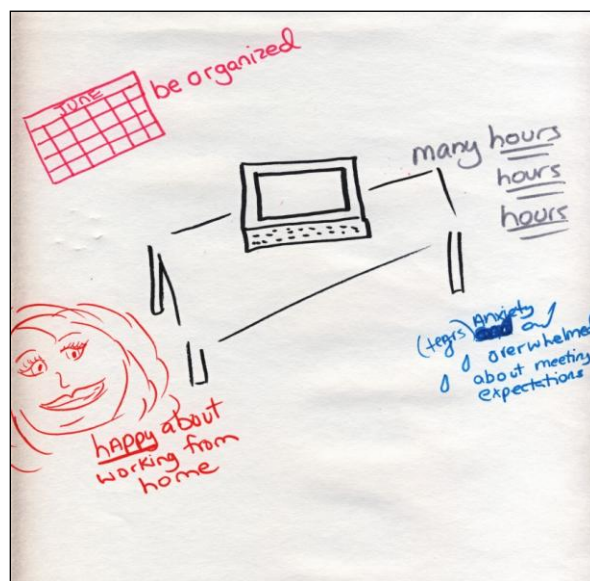 JUNE
be organized
many hours
hours
hours
(tears) Anxiety
overwhelmed
about meeting
expectations
hAPPy about
working from
home